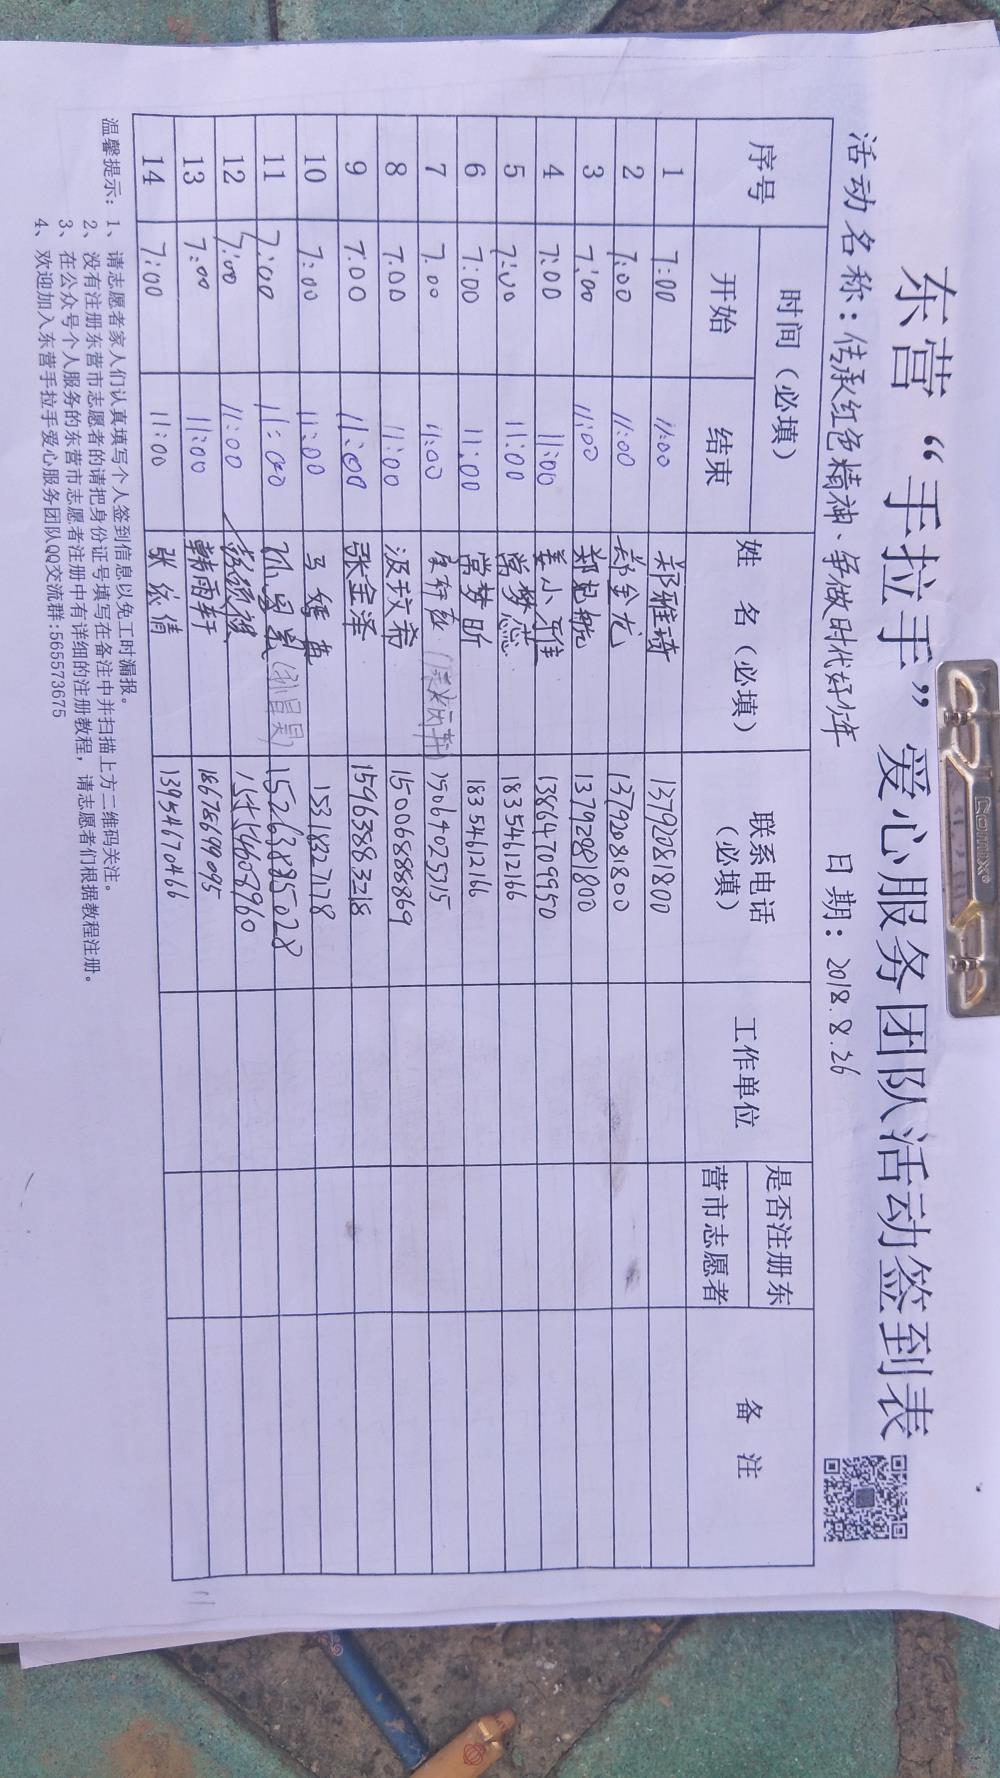 东营“手拉手”爱心服务团队活动签到表
活动名称：传承红色精神、争做时代好少年 日期：2018.8.26
序号 时间（必填） 姓 名（必填） 联系电话（必填） 工作单位 是否注册东营市志愿者 备 注
开始 结束
1 7:00 11:00 郑雅琦 13792081800
2 7:00 11:00 郑金龙 13792081800
3 7:00 11:00 郑 13792081800
4 7:00 11:00 姜小雅 13864709950
5 7:00 11:00 常梦蕊 18354612166
6 7:00 11:00 常梦昕 18354612166
7 7:00 11:00 15064025315
8 7:00 11:00 汲玟希 15006888869
9 7:00 11:00 张宝泽 15963883218
10 7:00 11:00 马 15318327178
11 7:00 11:00 (孙冒昊) 15263885028
12 7:00 11:00
13 7:00 11:00 韩雨轩 18678699095
14 7:00 11:00 张倩 13954670466
温馨提示：1、请志愿者家人们认真填写个人签到信息以免工时漏报。
2、没有注册东营市志愿者的请把身份证号填写在备注中并扫描上方二维码关注。
3、在公众号个人服务的东营市志愿者注册中有详细的注册教程，请志愿者们根据教程注册。
4、欢迎加入东营手拉手爱心服务团队QQ交流群:565573675
Comix